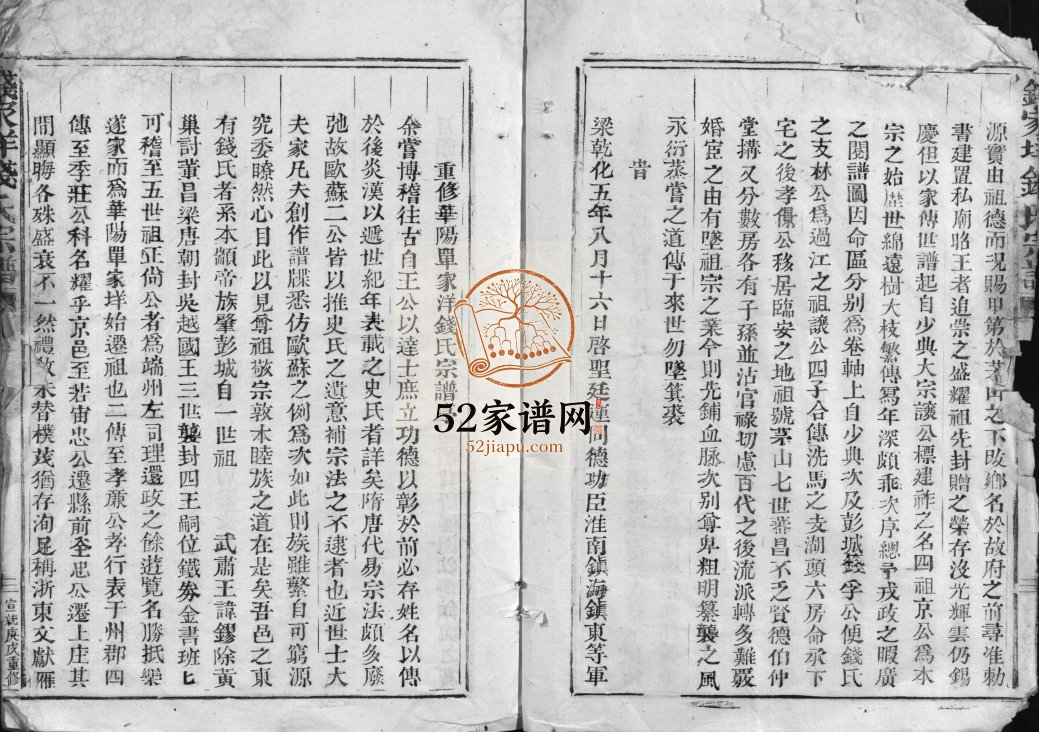 源實由祖德而況賜甲第於茅山之下改鄉名於故府之前尋准勅
書建置私廟略王者追崇之盛耀祖先封贈之榮存沒光輝雲仍錫
慶但以家傳世譜起自少典大宗讓公標建祚之名四祖京公爲本
宗之始歷世綿遠樹大枝繁傳寫年深頗乖次序總予戎政之暇廣
之閱譜圖因命區分別爲卷軸上自少典次及彭城籛孚公使錢氏
之支林公爲過江之祖讓公四子合傳洗馬之支湖頭六房命承下
宅之後孝傷公移居臨安之地祖號 山七世蕃昌不乏賢德伯仲
堂搆又分數房各有子孫並沾官祿切慮百代之後流派轉多難
婚宦之由有墜祖宗之業今則先鋪血脉次別尊卑粗明纂襲之風
永衍蒸嘗之道傳于來世勿墜箕裘
旹
梁乾化五年八月十六日啓聖廷運同德功臣淮南鎭海鎭東等軍
重修華陽單家洋錢氏宗譜
余嘗博稽往古自王公以達士庶立功德以彰於前必存姓名以傳
於後炎漢以遞世紀年表載之史氏者詳矣隋唐代易宗法頗多廢
弛故歐蘇二公皆以推史氏之遺意補宗法之不逮者也近世士大
夫家凡夫創作譜牒悉仿歐蘇之例爲次如此則族雖繫自可窮源
究委瞭然心目此以見尊祖敬宗敦本睦族之道在是矣吾邑之東
有錢氏者系本顓帝族肇彭城自一世祖 武肅王諱鏐除黃
巢討董昌梁唐朝封吳越國王三世襲封四王嗣位鐵券金書班匕
可稽至五世祖正倘公者爲端州左司理還政之餘遊覽名勝抵樂
遂家而爲華陽單家垟始遷祖也二傳至孝亷公孝行表于州郡四
傳至季莊公科名耀乎京邑至若宙忠公遷縣前 忠公遷上庄其
間顯晦各殊盛衰不一然禮敎未替樸茂猶存洵足稱浙東文獻雁
錢家垟錢氏宗譜
宣統庚戌重修
52家谱网
52jiapu.com